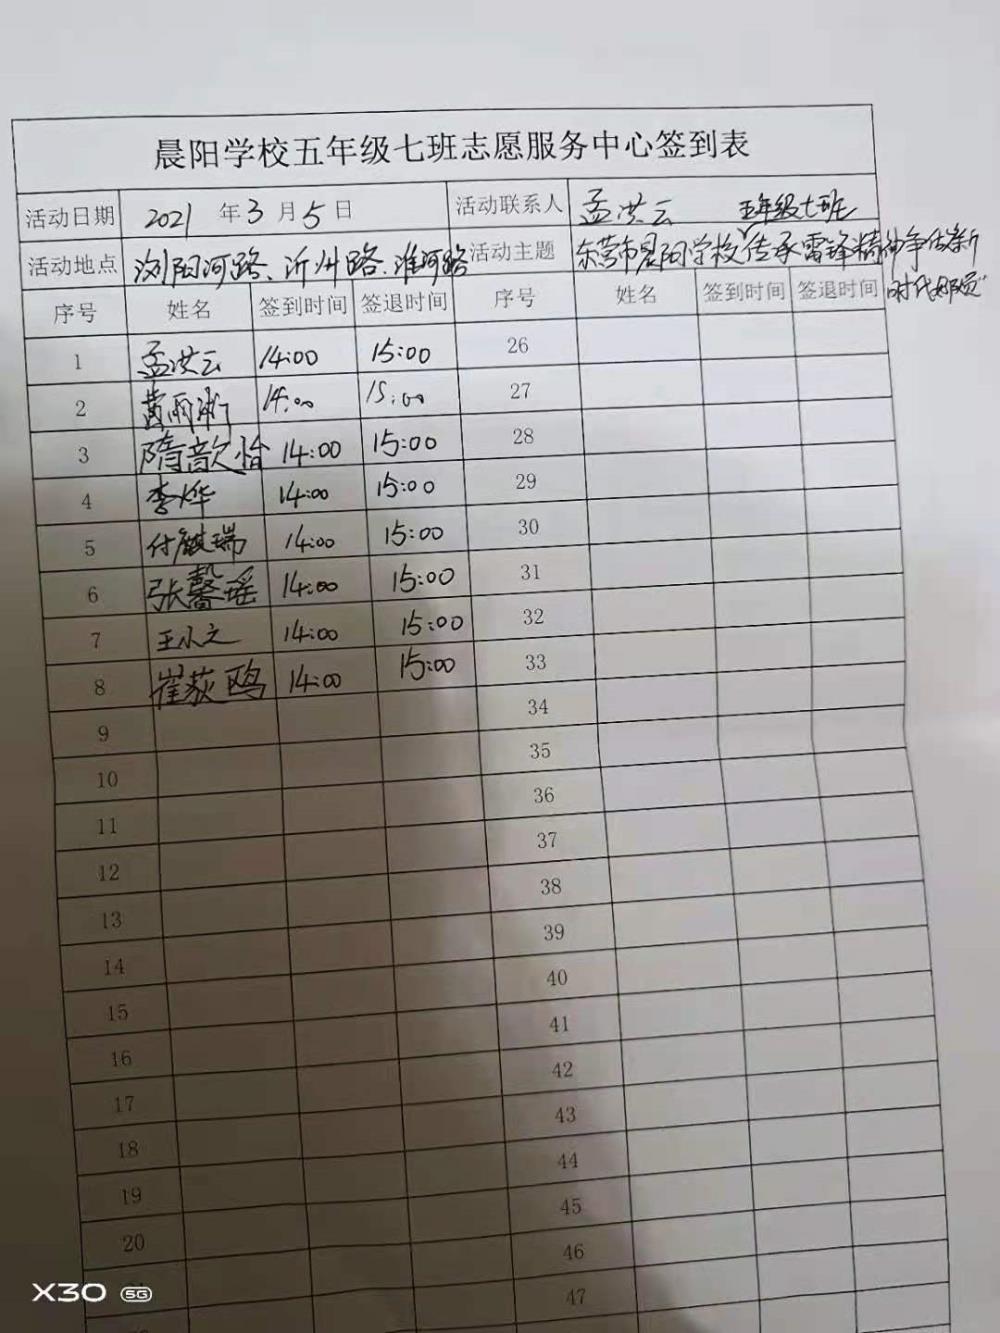 晨阳学校五年级七班志愿服务中心签到表
活动日期 2021 年 3 月 5 日 活动联系人 孟洪云 五年级七班
活动地点 浏阳河路、沂州路、淮河路 活动主题 东营市晨阳学校传承雷锋精神争做新
时代好队员"
序号 姓名 签到时间 签退时间 序号 姓名 签到时间 签退时间
1 孟洪云 14:00 15:00 26
2 黄雨淅 14:00 15:00 27
3 隋歆怡 14:00 15:00 28
4 李烨 14:00 15:00 29
5 付麒瑞 14:00 15:00 30
6 张馨瑶 14:00 15:00 31
7 王小文 14:00 15:00 32
8 崔荻鸥 14:00 15:00 33
9 34
10 35
11 36
12 37
13 38
14 39
15 40
16 41
17 42
18 43
19 44
20 45
46
47
X30 5G